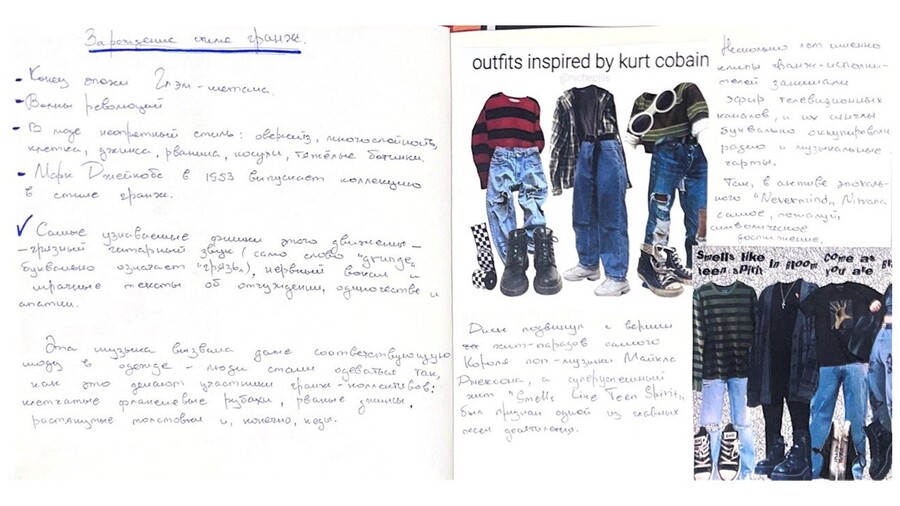 Зарождение стиля гранж.
- Конец эпохи Глэм-металла.
- Волны революций
- В моде неопрятный стиль: оверсайз, многослойность,
клетка, джинса, рванина, косухи, тяжёлые ботинки.
- Марк Джейкобс в 1993 выпускает коллекцию
в стиле гранж.
✓ Самые узнаваемые фишки этого движения -
- грязный гитарный звук (само слово "grunge"
буквально означает "грязь"), нервный вокал и
мрачные тексты об отчуждении, одиночестве и
апатии.
Эта музыка вызвала даже соответствующую
моду в одежде - люди стали одеваться так,
как это делают участники гранж-коллективов:
клетчатые фланелевые рубахи, рваные джинсы,
растянутые толстовки и, конечно, кеды.
outfits inspired by kurt cobain
@nichepills
Несколько лет именно
клипы гранж-исполни-
телей занимали
эфир телевизионных
каналов, и их синглы
буквально оккупировали
радио и музыкальные
чарты.
Так, в активе эпохаль-
ного "Nevermind" Nirvana
самое, пожалуй,
символическое
достижение.
Диск подвинул с вершин
хит-парадов самого
Короля поп-музыки Майкла
Джексона, а суперуспешный
хит "Smells Like Teen Spirit"
был признан одной из главных
песен десятилетия.
Smells like
teen spirit
in bloom
come as
you are